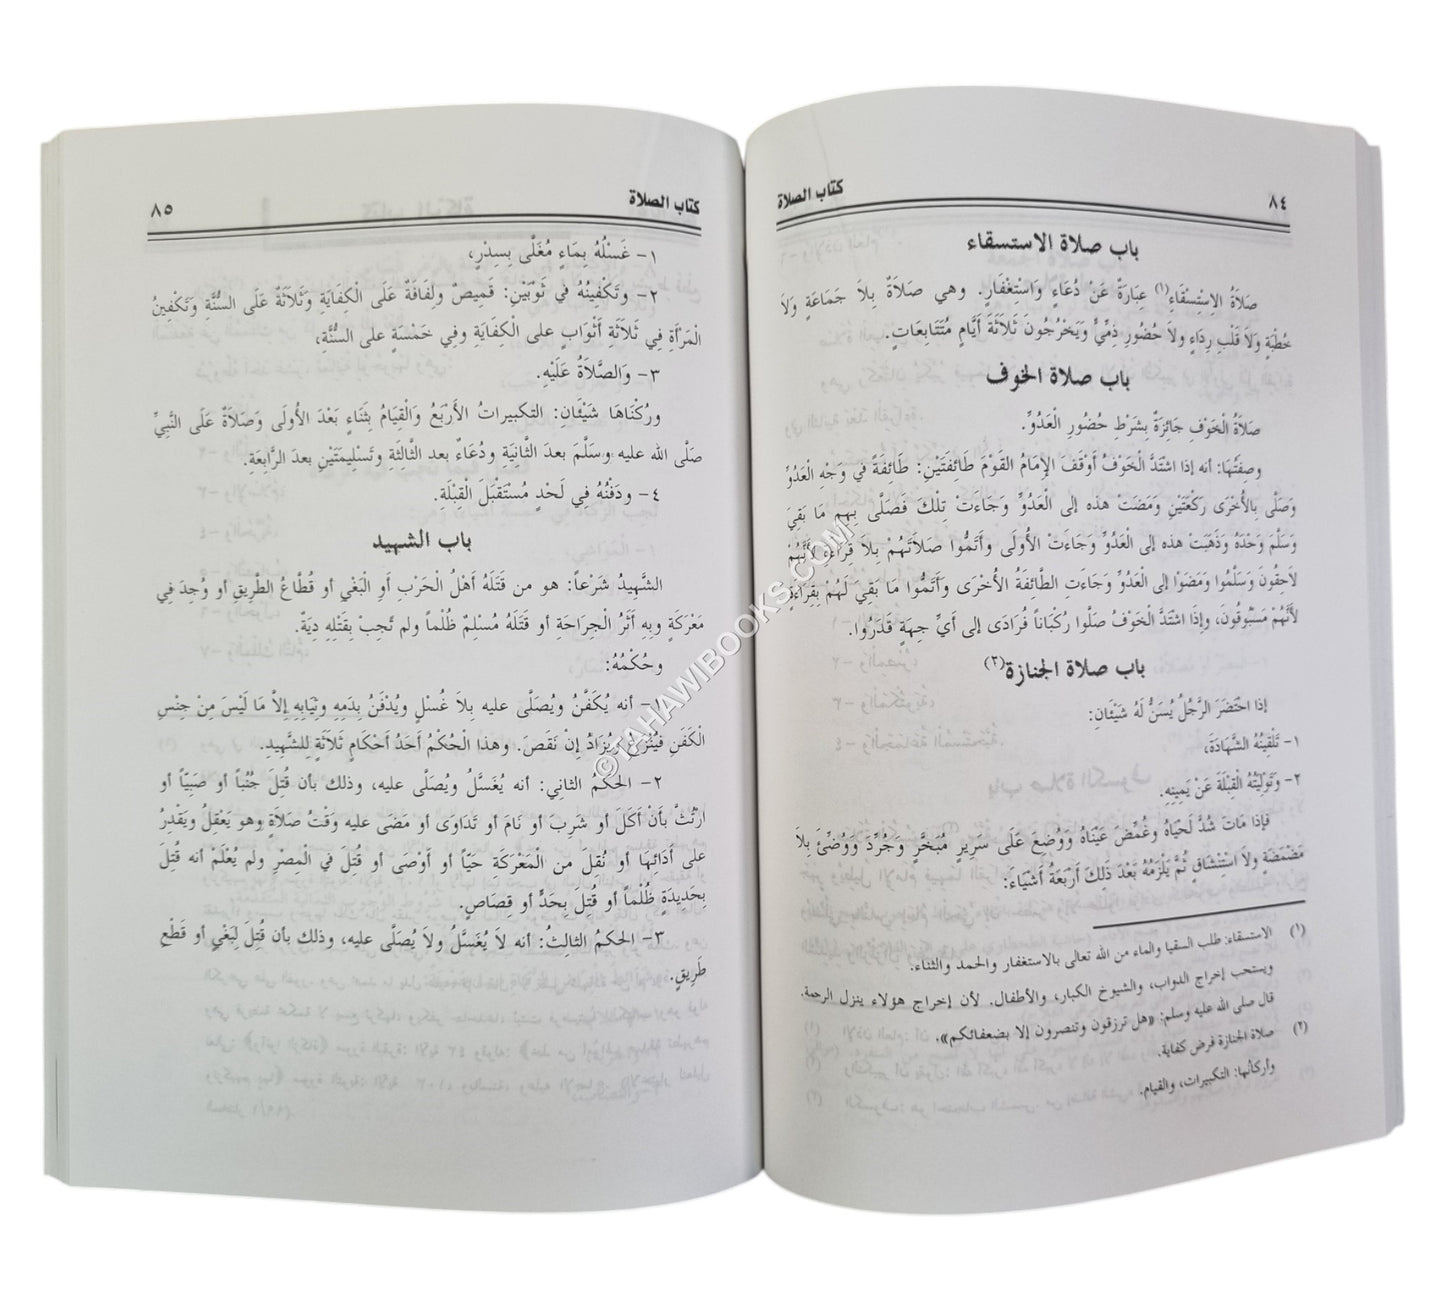 ٨٤ كتاب الصلاة
باب صلاة الاستسقاء
صَلاَةُ الاِسْتِسْقَاءِ(١) عِبَارَةٌ عَنْ دُعَاءٍ وَاسْتِغْفَارٍ. وهي صَلاَةٌ بِلاَ جَمَاعَةٍ وَلاَ
خُطْبَةٍ وَلاَ قَلْبِ رِدَاءٍ ولاَ حُضُورِ ذِمِّيٍّ وَيَخْرُجُونَ ثَلاَثَةَ أَيَّامٍ مُتَتَابِعَاتٍ.
باب صلاة الخوف
صَلاَةُ الْخَوْفِ جَائِزَةٌ بِشَرْطِ حُضُورِ الْعَدُوِّ.
وصِفَتُهَا: أنه إذا اشْتَدَّ الْخَوْفُ أَوْقَفَ الإِمَامُ القَوْمَ طَائِفَتَيْنِ: طَائِفَةً في وَجْهِ الْعَدُوِّ
وَصَلَّى بِالأُخْرَى رَكْعَتَيْنِ وَمَضَتْ هذه إلى الْعَدُوِّ وَجَاءَتْ تِلكَ فَصَلَّى بِهِم مَا بَقِيَ
وَسَلَّمَ وَحْدَهُ وَذَهَبَتْ هذه إلى الْعَدُوِّ وَجَاءَتِ الأُولَى وأَتَمُّوا صَلاَتَهُمْ بِلاَ قِرَاءَةٍ لأَنَّهُمْ
لاَحِقُونَ وَسَلَّمُوا وَمَضَوْا إلى الْعَدُوِّ وَجَاءَتِ الطَّائِفَةُ الأُخْرَى وَأَتَمُّوا مَا بَقِيَ لَهُمْ بِقِرَاءَةٍ
لأَنَّهُمْ مَسْبُوقُونَ، وَإذَا اشْتَدَّ الْخَوْفُ صَلّوا رُكْبَاناً فُرَادَى إلى أَيِّ جِهَةٍ قَدَرُوا.
باب صلاة الجنازة(٢)
إذا احْتَضَرَ الرَّجُلُ يُسَنُّ لَهُ شَيْئَانِ:
١- تَلْقِينُهُ الشَّهَادَةَ،
٢- وَتَوْلِيَتُهُ القِبْلَةَ عَنْ يَمِينِهِ.
فإذَا مَاتَ شُدَّ لَحْيَاهُ وغُمِّضَ عَيْنَاهُ وَوُضِعَ عَلَى سَرِيرٍ مُبَخَّرٍ وَجُرِّدَ وَوُضِّئَ بِلاَ
مَضْمَضَةٍ ولاَ اسْتِنْشَاقٍ ثُمَّ يَلْزَمُهُ بَعْدَ ذَلِكَ أَرْبَعَةُ أَشْيَاءَ:
(١) الاستسقاء: طلب السقيا والماء من الله تعالى بالاستغفار والحمد والثناء.
ويستحب إخراج الدواب، والشيوخ الكبار، والأطفال. لأن إخراج هؤلاء ينزل الرحمة.
قال صلى الله عليه وسلم: «هل ترزقون وتنصرون إلا بضعفائكم».
(٢) صلاة الجنازة فرض كفاية.
وأركانها: التكبيرات، والقيام.
كتاب الصلاة ٨٥
١- غَسْلُهُ بِمَاءٍ مُغَلَّى بِسِدْرٍ،
٢- وتَكْفِينُهُ في ثَوْبَيْنِ: قَمِيصٌ ولِفَافَةٌ عَلَى الْكِفَايَةِ وَثَلاَثَةٌ عَلَى السُّنَّةِ وَتَكْفِينُ
الْمَرْأَةِ فِي ثَلاَثَةِ أَثْوَابٍ على الْكِفَايَةِ وفِي خَمْسَةٍ على السُّنَّةِ،
٣- وَالصَّلاَةُ عَلَيْهِ.
ورُكْنَاهَا شَيْئَانِ: التكبيراتُ الأَرْبَعُ وَالْقِيَامُ بِثَنَاءٍ بَعْدَ الأُولَى وَصَلاَةٌ عَلَى النَّبِيِّ
صَلَّى الله عليه وسَلَّمَ بعدَ الثَّانِيَةِ ودُعَاءٌ بعدَ الثَّالِثَةِ وتَسْلِيمَتَيْنِ بعدَ الرَّابِعَةِ.
٤- ودَفْنُهُ فِي لَحْدٍ مُسْتَقْبَلَ الْقِبْلَةِ.
باب الشهيد
الشَّهِيدُ شَرْعاً: هو من قَتَلَهُ أَهْلُ الْحَرْبِ أَوِ الْبَغْي أو قُطَّاعُ الطَّرِيقِ أو وُجِدَ فِي
مَعْرَكَةٍ وبِهِ أَثَرُ الْجِرَاحَةِ أو قَتَلَهُ مُسْلِمٌ ظُلْماً ولم تَجِبْ بِقَتْلِهِ دِيَةٌ.
وحُكْمُهُ:
١- أنه يُكَفَّنُ ويُصَلَّى عليه بِلاَ غُسْلٍ ويُدْفَنُ بِدَمِهِ وثِيَابِهِ إلاَّ مَا لَيْسَ مِنْ جِنْسِ
الْكَفَنِ فَيُنْزَعُ ويُزَادُ إنْ نَقَصَ. وهذا الْحُكْمُ أَحَدُ أَحْكَامٍ ثَلاَثَةٍ لِلشَّهِيدِ.
٢- الحكمُ الثانِي: أنه يُغَسَّلُ ويُصَلَّى عليه، وذلك بأن قُتِلَ جُنُباً أو صَبِيّاً أو
ارْتُثَّ بأَنْ أَكَلَ أو شَرِبَ أو نَامَ أو تَدَاوَى أو مَضَى عليه وَقْتُ صَلاَةٍ وهو يَعْقِلُ ويَقْدِرُ
على أَدَائِهَا أو نُقِلَ من الْمَعْرَكَةِ حَيّاً أو أَوْصَى أو قُتِلَ في الْمِصْرِ ولم يُعْلَمْ أنه قُتِلَ
بِحَدِيدَةٍ ظُلْماً أو قُتِلَ بِحَدٍّ أو قِصَاصٍ.
٣- الحكمُ الثالِثُ: أنه لاَ يُغَسَّلُ ولاَ يُصَلَّى عليه، وذلك بأن قُتِلَ لِبَغْيٍ أو قَطْعِ
طَرِيقٍ.
©TAHAWIBOOKS.COM